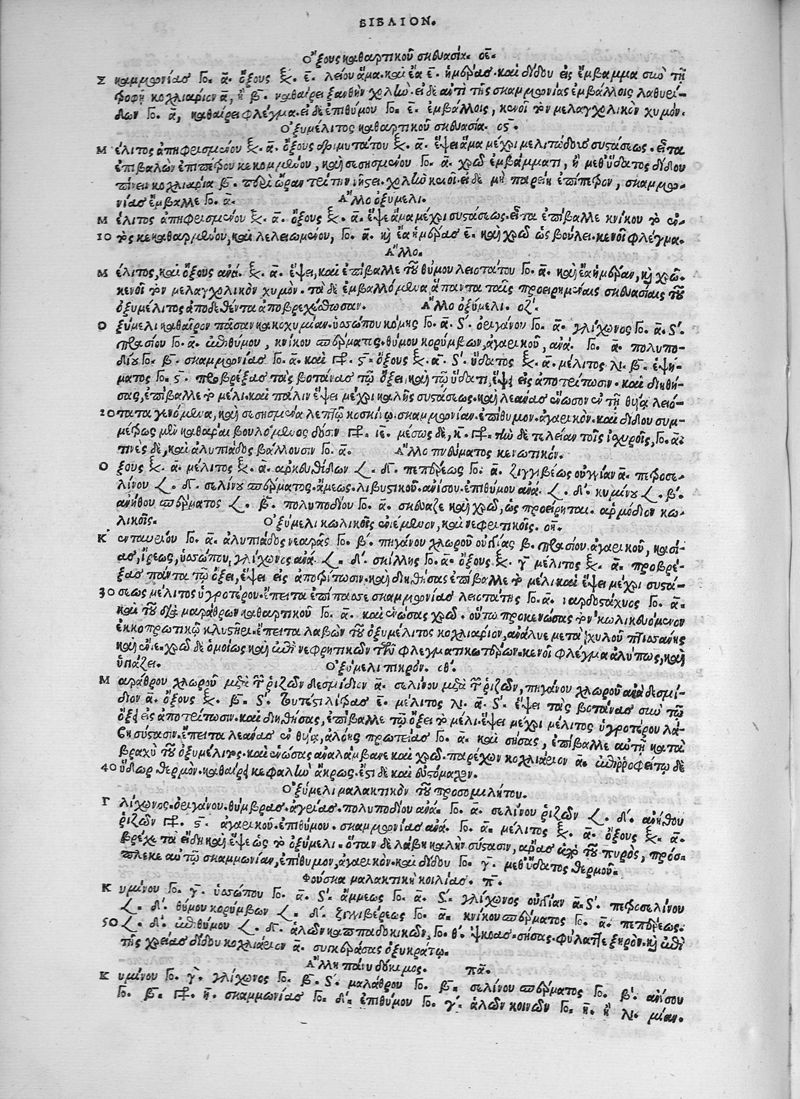 ΒΙΒΛΙΟΝ.
Ὄξους καθαρτικοῦ σκευασία. οε̄.
Σκαμμωνίας Γο. ᾱ. ὄξους ξε. ε̄. λείου ἅμα. καὶ ἔα ε̄. ἡμέρας. καὶ δίδου εἰς ἔμβαμμα σὺν τῇ
τροφῇ κοχλιάριον ᾱ, ἢ β̄. καθαίρει ξανθὴν χολήν. εἰ δὲ ἀντὶ τῆς σκαμμωνίας ἐμβάλλοις λαθυρί-
δων Γο. ᾱ, καθαίρει φλέγμα. εἰ δὲ ἐπιθύμου Γο. ε̄. ἐμβάλλοις, κενοῖ τὸν μελαγχολικὸν χυμόν.
Ὀξυμέλιτος καθαρτικοῦ σκευασία. οϛ̄.
Μέλιτος ἀπηφρισμένου ξε. ᾱ. ὄξους δριμυτάτου ξε. ᾱ. ἕψει ἅμα μέχρι μελιτώδους συστάσεως. εἶτα
ἐπιβαλὼν ἐπιθύμου κεκομμένου, καὶ σεσησμένου Γο. ᾱ. χρῶ ἐμβάμματι, ἢ μεθ' ὕδατος δίδου
πίνειν κοχλιάρια β̄. περὶ ὥραν τρίτην νήστει. χολὴν κενοῖ. εἰ δὲ μὴ παρείη ἐπίθυμον, σκαμμω-
νίας ἔμβαλλε Γο. ᾱ. Ἄλλο ὀξυμέλι.
Μέλιτος ἀπηφρισμένου ξε. ᾱ. ὄξους ξε. ᾱ. ἕψε ἅμα μέχρι συστάσεως. εἶτα ἐπίβαλλε κνίκου τὸ ἐν-
10 τὸς κεκαθαρμένου, καὶ λελειωμένου, Γο. ᾱ. καὶ ἔα ἡμέρας ε̄. καὶ χρῶ ὡς βούλει. κενοῖ φλέγμα.
Ἄλλο.
Μέλιτος, καὶ ὄξους ἀνὰ. ξε. ᾱ. ἕψει, καὶ ἐπίβαλλε τοῦ θύμου λειοτάτου Γο. ᾱ. καὶ ἔα ἡμέραν, καὶ χρῶ.
κενοῖ τὸν μελαγχολικὸν χυμόν. τὰ δὲ ἐμβαλλόμενα ἅπαντα ταῖς προειρημέναις σκευασίαις τοῦ
ὀξυμέλιτος ἀποδεθέντα ἀποβρεχέσθωσαν. Ἄλλο ὀξυμέλι. οζ̄.
Ὀξύμελι καθαῖρον πᾶσαν κακοχυμίαν. ὑσσώπου κόμης Γο. ᾱ. S. ὀριγάνου Γο. ᾱ. γλίχωνος Γο. ᾱ. S.
πρασίου Γο. ᾱ. ἐπιθύμου, κνίκου σπέρματος. θύμου κορύμβων, ἀγαρικοῦ, ἀνὰ. Γο. ᾱ. πολυπο-
δίου Γο. β̄. σκαμμωνίας Γο. ᾱ. καὶ ϛ̄. ὄξους ξε. ᾱ. S. ὕδατος ξε. ᾱ. μέλιτος λι. β̄. ἑψή-
ματος Γο. ϛ̄. προβρέξας τὰς βοτάνας τῷ ὄξει, καὶ τῷ ὕδατι, ἕψει εἰς ἀποτρίτωσιν. καὶ διηθή-
σας, ἐπίβαλλε τὸ μέλι. καὶ πάλιν ἕψει μέχρι καλῆς συστάσεως. καὶ λεάνας ἕνωσον ἐν τῇ θυίᾳ λειό-
20 τατα γενόμενα, καὶ σεσησμένα λεπτῷ κοσκίνῳ. σκαμμωνίαν. ἐπίθυμον. ἀγαρικόν. καὶ δίδου συμ-
μέτρως μὲν καθᾶραι βουλόμενος δύσιν ιε̄. μέσως δὲ, κ̄. τὴν δὲ τελείαν τοῖς ἰσχυροῖς, Γο. ᾱ.
τινὲς δὲ, καὶ ἀλυπιάδος βάλλουσιν Γο. ᾱ. Ἄλλο πνεύματος κενωτικόν.
Ὄξους ξε. ᾱ. μέλιτος ξε. ᾱ. ἀρκευθίδων δ̄. πεπέρεως Γο. ᾱ. ζιγγιβέως οὐγγίαν ᾱ. πετροσε-
λίνου δ̄. σελίνου σπέρματος. ἄμεως. λιβυστικοῦ. ἀνίσου. ἐπιθύμου ἀνὰ. δ̄. κυμίνου β̄.
ἀνήθου σπέρματος β̄. πολυποδίου Γο. ᾱ. σκεύαζε καὶ χρῶ, ὡς προείρηται. ἁρμόδιον κω-
λικοῖς. Ὀξύμελι κωλικοῖς ὠφέλιμον, καὶ νεφριτικοῖς. οη̄.
Κενταυρίου Γο. ᾱ. ἀλυπιάδος νεαρᾶς Γο. β̄. πηγάνου χλωροῦ οὐγγίας β. πρασίου. ἀγαρικοῦ, κασί-
ας, ἴρεως, ὑσσώπου, γλίχωνος ἀνὰ δ̄. σκίλλης Γο. ᾱ. ὄξους ξε. γ̄ μέλιτος ξε. ᾱ. προβρέ-
ξας πάντα τῷ ὄξει, ἕψει εἰς ἀποτρίτωσιν. καὶ διηθήσας ἐπίβαλλε τὸ μέλι καὶ ἕψει μέχρι συστά-
30 σεως μέλιτος ὑγροτέρου. ἔπειτα ἐπίπασσε σκαμμωνίας λειοτάτης Γο. ᾱ. ναρδοστάχυος Γο. ᾱ.
καὶ τοῦ διὰ μαράθρων καθαρτικοῦ Γο. ᾱ. καὶ ἑνώσας χρῶ. οὕτω προκενώσας τὸν κωλικευόμενον
ἐκκοπρωτικῷ κλυστῆρι. ἔπειτα λαβὼν τοῦ ὀξυμέλιτος κοχλιάριον, ἀνάλυε μετὰ χυλοῦ πτισάνης
καὶ χρῶ δὲ ὁμοίως καὶ ἐπὶ νεφριτικῶν τῶν φλεγματικωτέρων. κενοῖ φλέγμα ἀλύπως, καὶ
ὑπάγει. Ὀξύμελι πικρόν. οθ̄.
Μαράθρου χλωροῦ μετὰ τῶν ῥιζῶν δεσμίδιον ᾱ. σελίνου μετὰ τῶν ῥιζῶν, πηγάνου χλωροῦ ἀνὰ δεσμί-
διον ᾱ. ὄξους ξε. β̄. S. μέλιτος λι. ᾱ. S. ἕψει τὰς βοτάνας σὺν τῷ
ὄξει εἰς ἀποτρίτωσιν. καὶ διηθήσας, ἐπίβαλλε τῷ ὄξει τὸ μέλι. ἕψει μέχρι μέλιτος ὑγροτέρου λά-
βῃ σύστασιν. ἔπειτα λεάνας ἐν θυίᾳ, ἀλόης πρωτείας Γο. ᾱ. καὶ σήσας, ἐπίβαλλε αὐτῇ κατὰ
βραχὺ τοῦ ὀξυμέλιτος. καὶ ἑνώσας ἀναλάμβανε καὶ χρῶ. παρέχων κοχλιάριον ᾱ. ἐπιρροφείτω δὲ
40 ὕδωρ θερμόν. καθαίρει κεφαλὴν ἄκρως. ἔστι δὲ καὶ εὐστόμαχον.
Ὀξύμελι μαλακτικὸν τοῦ προσομιλήτου.
Γλίχωνος. ὀριγάνου. θύμβρας. ἀγρίας. πολυποδίου ἀνὰ. Γο. ᾱ. σελίνου ῥιζῶν δ̄. ἀνήθου
ῥιζῶν ϛ̄. ἀγαρικοῦ. ἐπιθύμου. σκαμμωνίας ἀνὰ. Γο. ᾱ. μέλιτος ξε. ᾱ. ὄξους ξε. ᾱ.
βρέχε τὰ εἴδη καὶ ἕψε ὡς τὸ ὀξύμελι. ὅταν δὲ λάβῃ καλὴν σύστασιν, ἄρας ἀπὸ τοῦ πυρὸς, πρόσ-
πλεκε αὐτῷ σκαμμωνίαν, ἐπίθυμον, ἀγαρικόν. καὶ δίδου Γο. γ̄. μεθ' ὕδατος θερμοῦ.
Φοῦσκα μαλακτικὴ κοιλίας. π̄.
Κυμίνου Γο. γ̄. ὑσσώπου Γο. ᾱ. S. ἄμμεως Γο. ᾱ. S. γλίχωνος οὐγγίαν ᾱ. S. πετροσελίνου
δ̄. θύμου κορύμβων δ̄. ζιγγιβέρεως Γο. ᾱ. κνίκου σπέρματος Γο. ᾱ. πεπέρεως.
50 δ̄. ἐπιθύμου δ̄. ἁλῶν καππαδοκικῶν, Γο. θ̄. τρίψας. σήσας. φύλαττε ξηρόν. καὶ ἐπὶ
τῆς χρείας δίδου κοχλιάριον ᾱ. συγκεράσας ὀξυκράτῳ.
Ἄλλη πάνυ δόκιμος. πᾱ.
Κυμίνου Γο. γ̄. γλίχωνος Γο. β̄. S. μαλάθρου Γο. β̄. σελίνου σπέρματος Γο. β̄. ἀνίσου
Γο. β̄. η̄. σκαμμωνίας Γο. δ̄. ἐπιθύμου Γο. γ̄. ἁλῶν κοινῶν Γο. η̄. ἢ λι. μίαν.